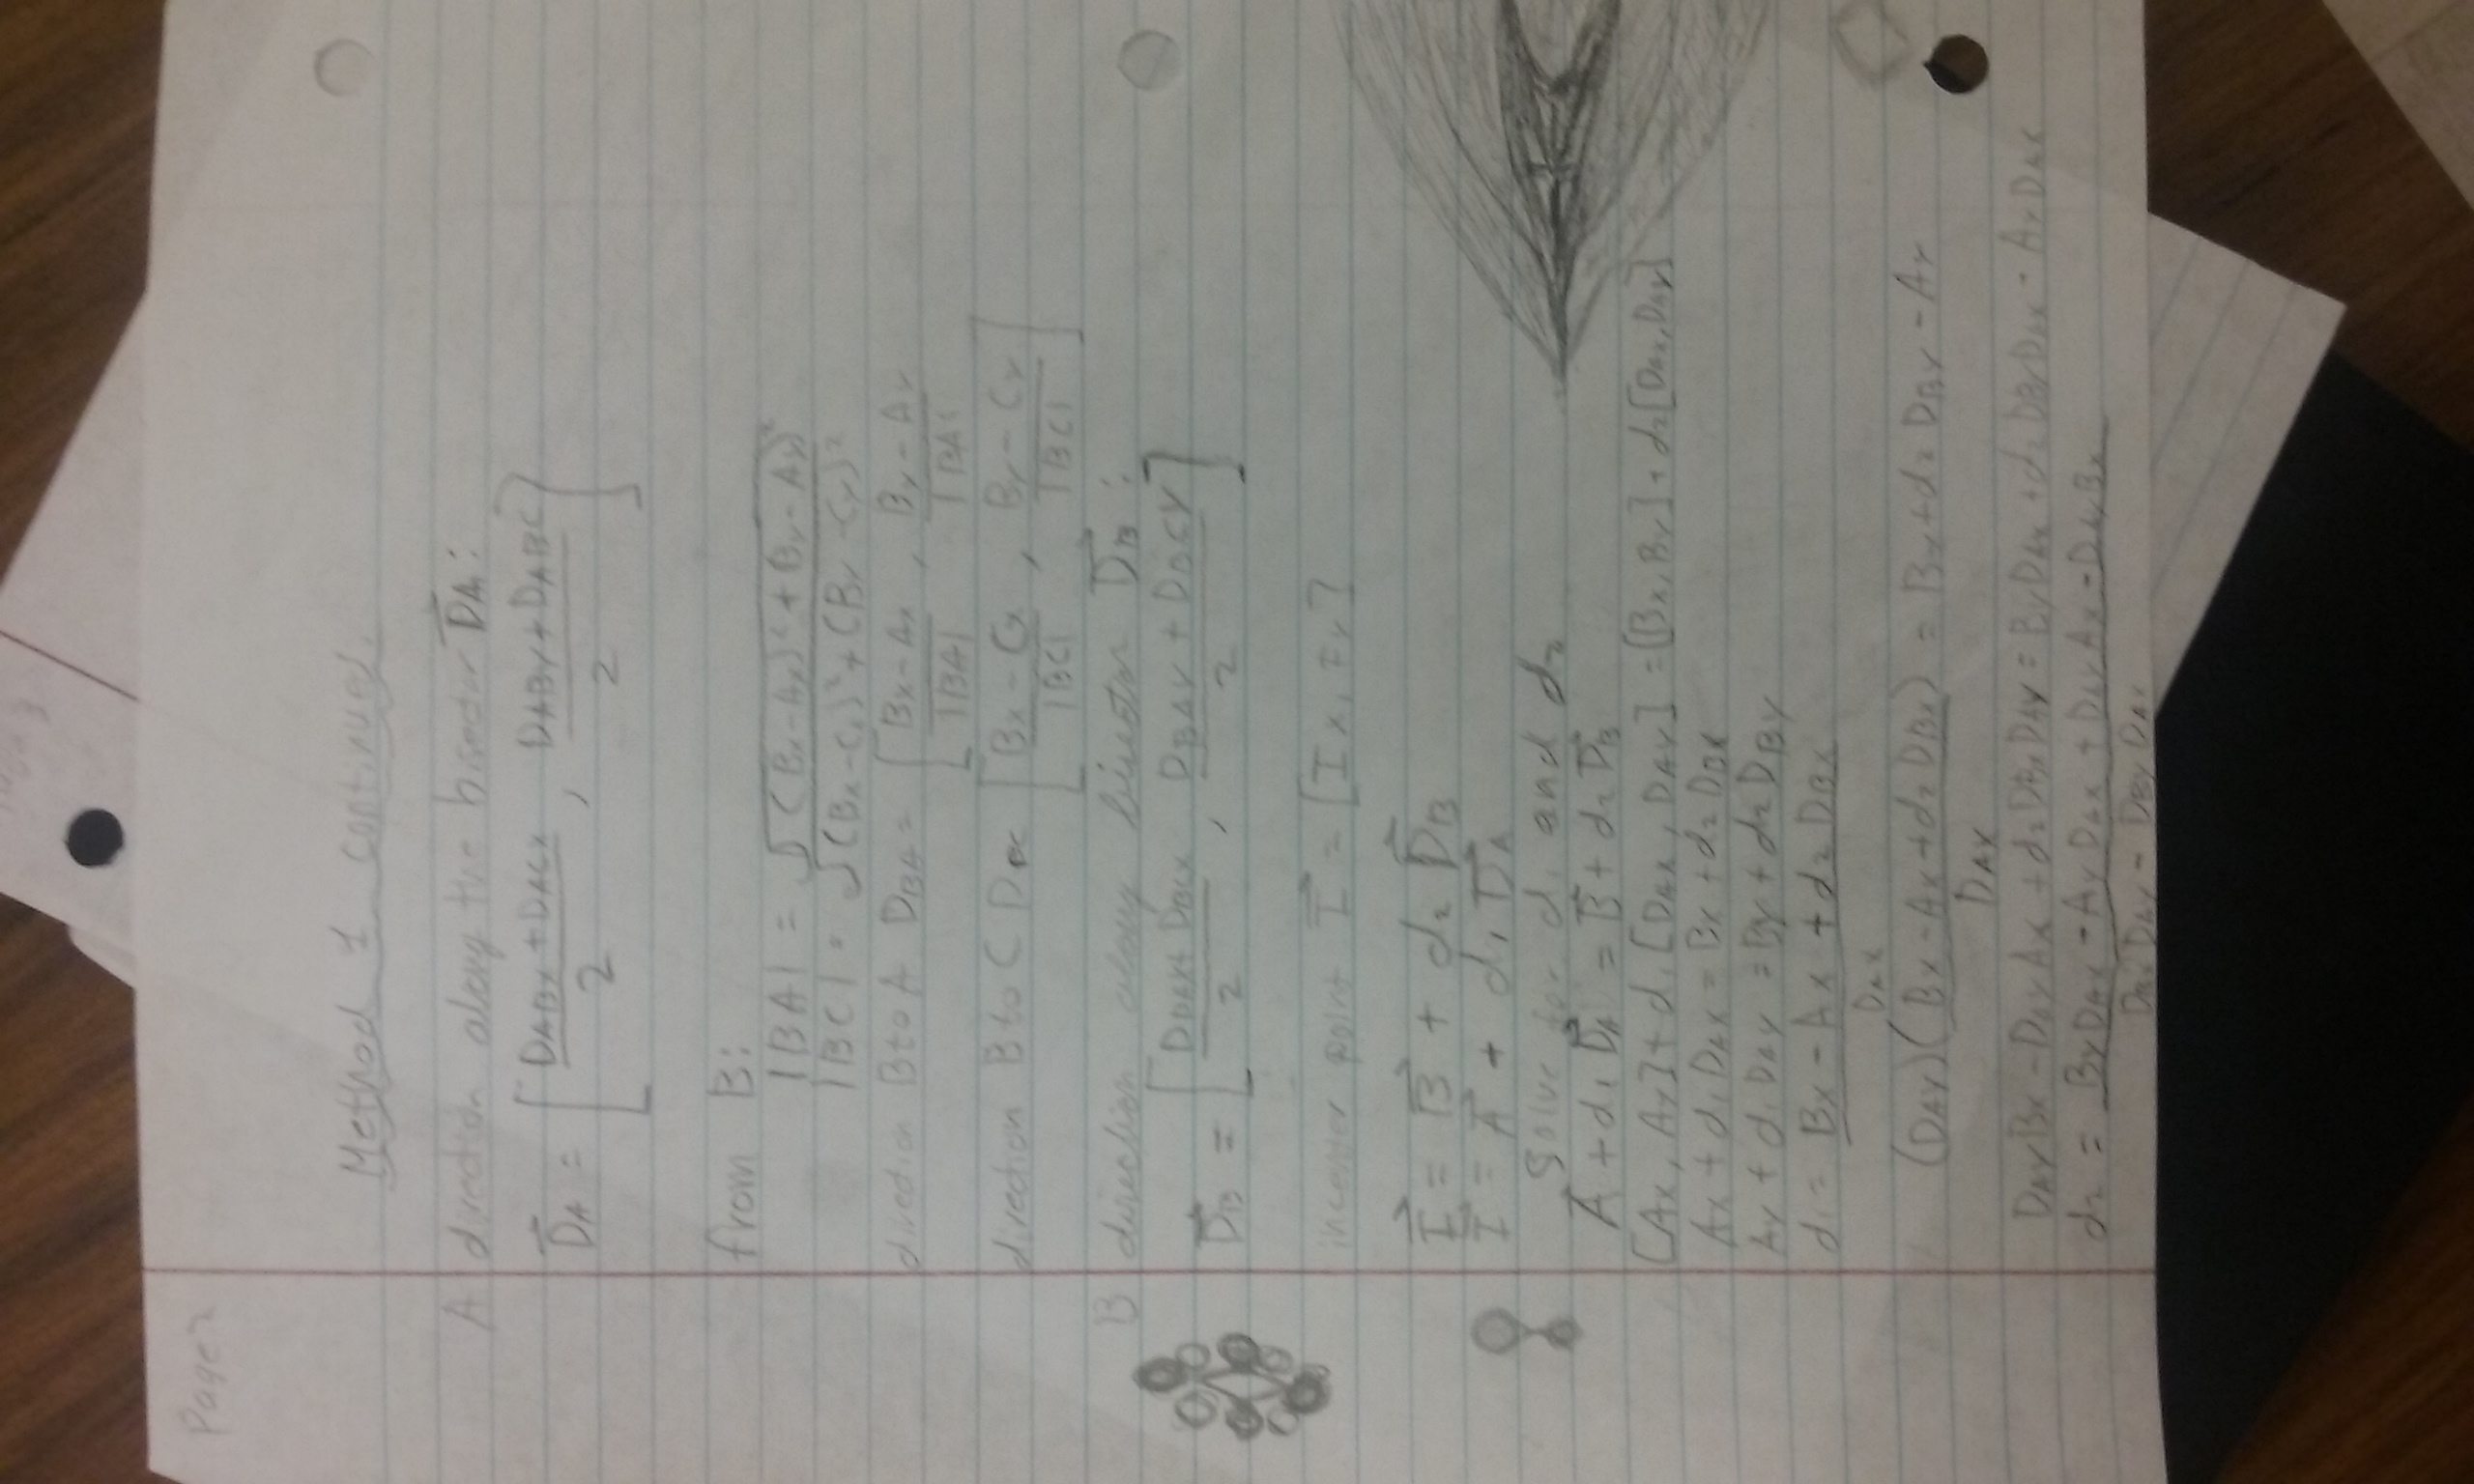 Page 2
Method 1 continued.
A direction along the bisector D⃗A:
D⃗A = [ (DABx + DACx)/2 , (DABY + DABC)/2 ]
from B:
|BA| = √((Bx-Ax)² + (By-Ay)²
|BC| = √(Bx-Cx)² + (By-Cy)²
direction B to A DBA = [ (Bx-Ax)/|BA| , (By-Ay)/|BA|
direction B to C DBC [ (Bx-Cx)/|BC| , (By-Cy)/|BC| ]
B direction along bisector D⃗B :
D⃗B = [ (DBAX + DBCX)/2 , (DBAY + DBCY)/2 ]
incenter point I⃗ = [Ix, Iy]
I⃗ = B⃗ + d2 D⃗B
I⃗ = A⃗ + d1 D⃗A
Solve for d1 and d2
A⃗ + d1 D⃗A = B⃗ + d2 D⃗B
[Ax, Ay] + d1 [DAX, DAY] = [Bx, By] + d2 [DAX, DAY]
Ax + d1 DAX = Bx + d2 DBX
Ay + d1 DAY = By + d2 DBY
d1 = (Bx - Ax + d2 DBX)/DAX
(DAY)((Bx - Ax + d2 DBX)/DAX) = By + d2 DBY - Ay
DAY Bx - DAY Ax + d2 DBX DAY = By DAX + d2 DBY DAX - Ay DAX
d2 = (By DAX - Ay DAX + DAY Ax - DAY Bx)/(DBX DAY - DBY DAX)